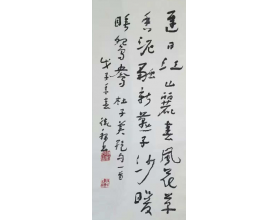 遲日江山麗春風花草
香泥融新燕子沙暖
睡鴛鴦杜子美絕句一首
戊子季春